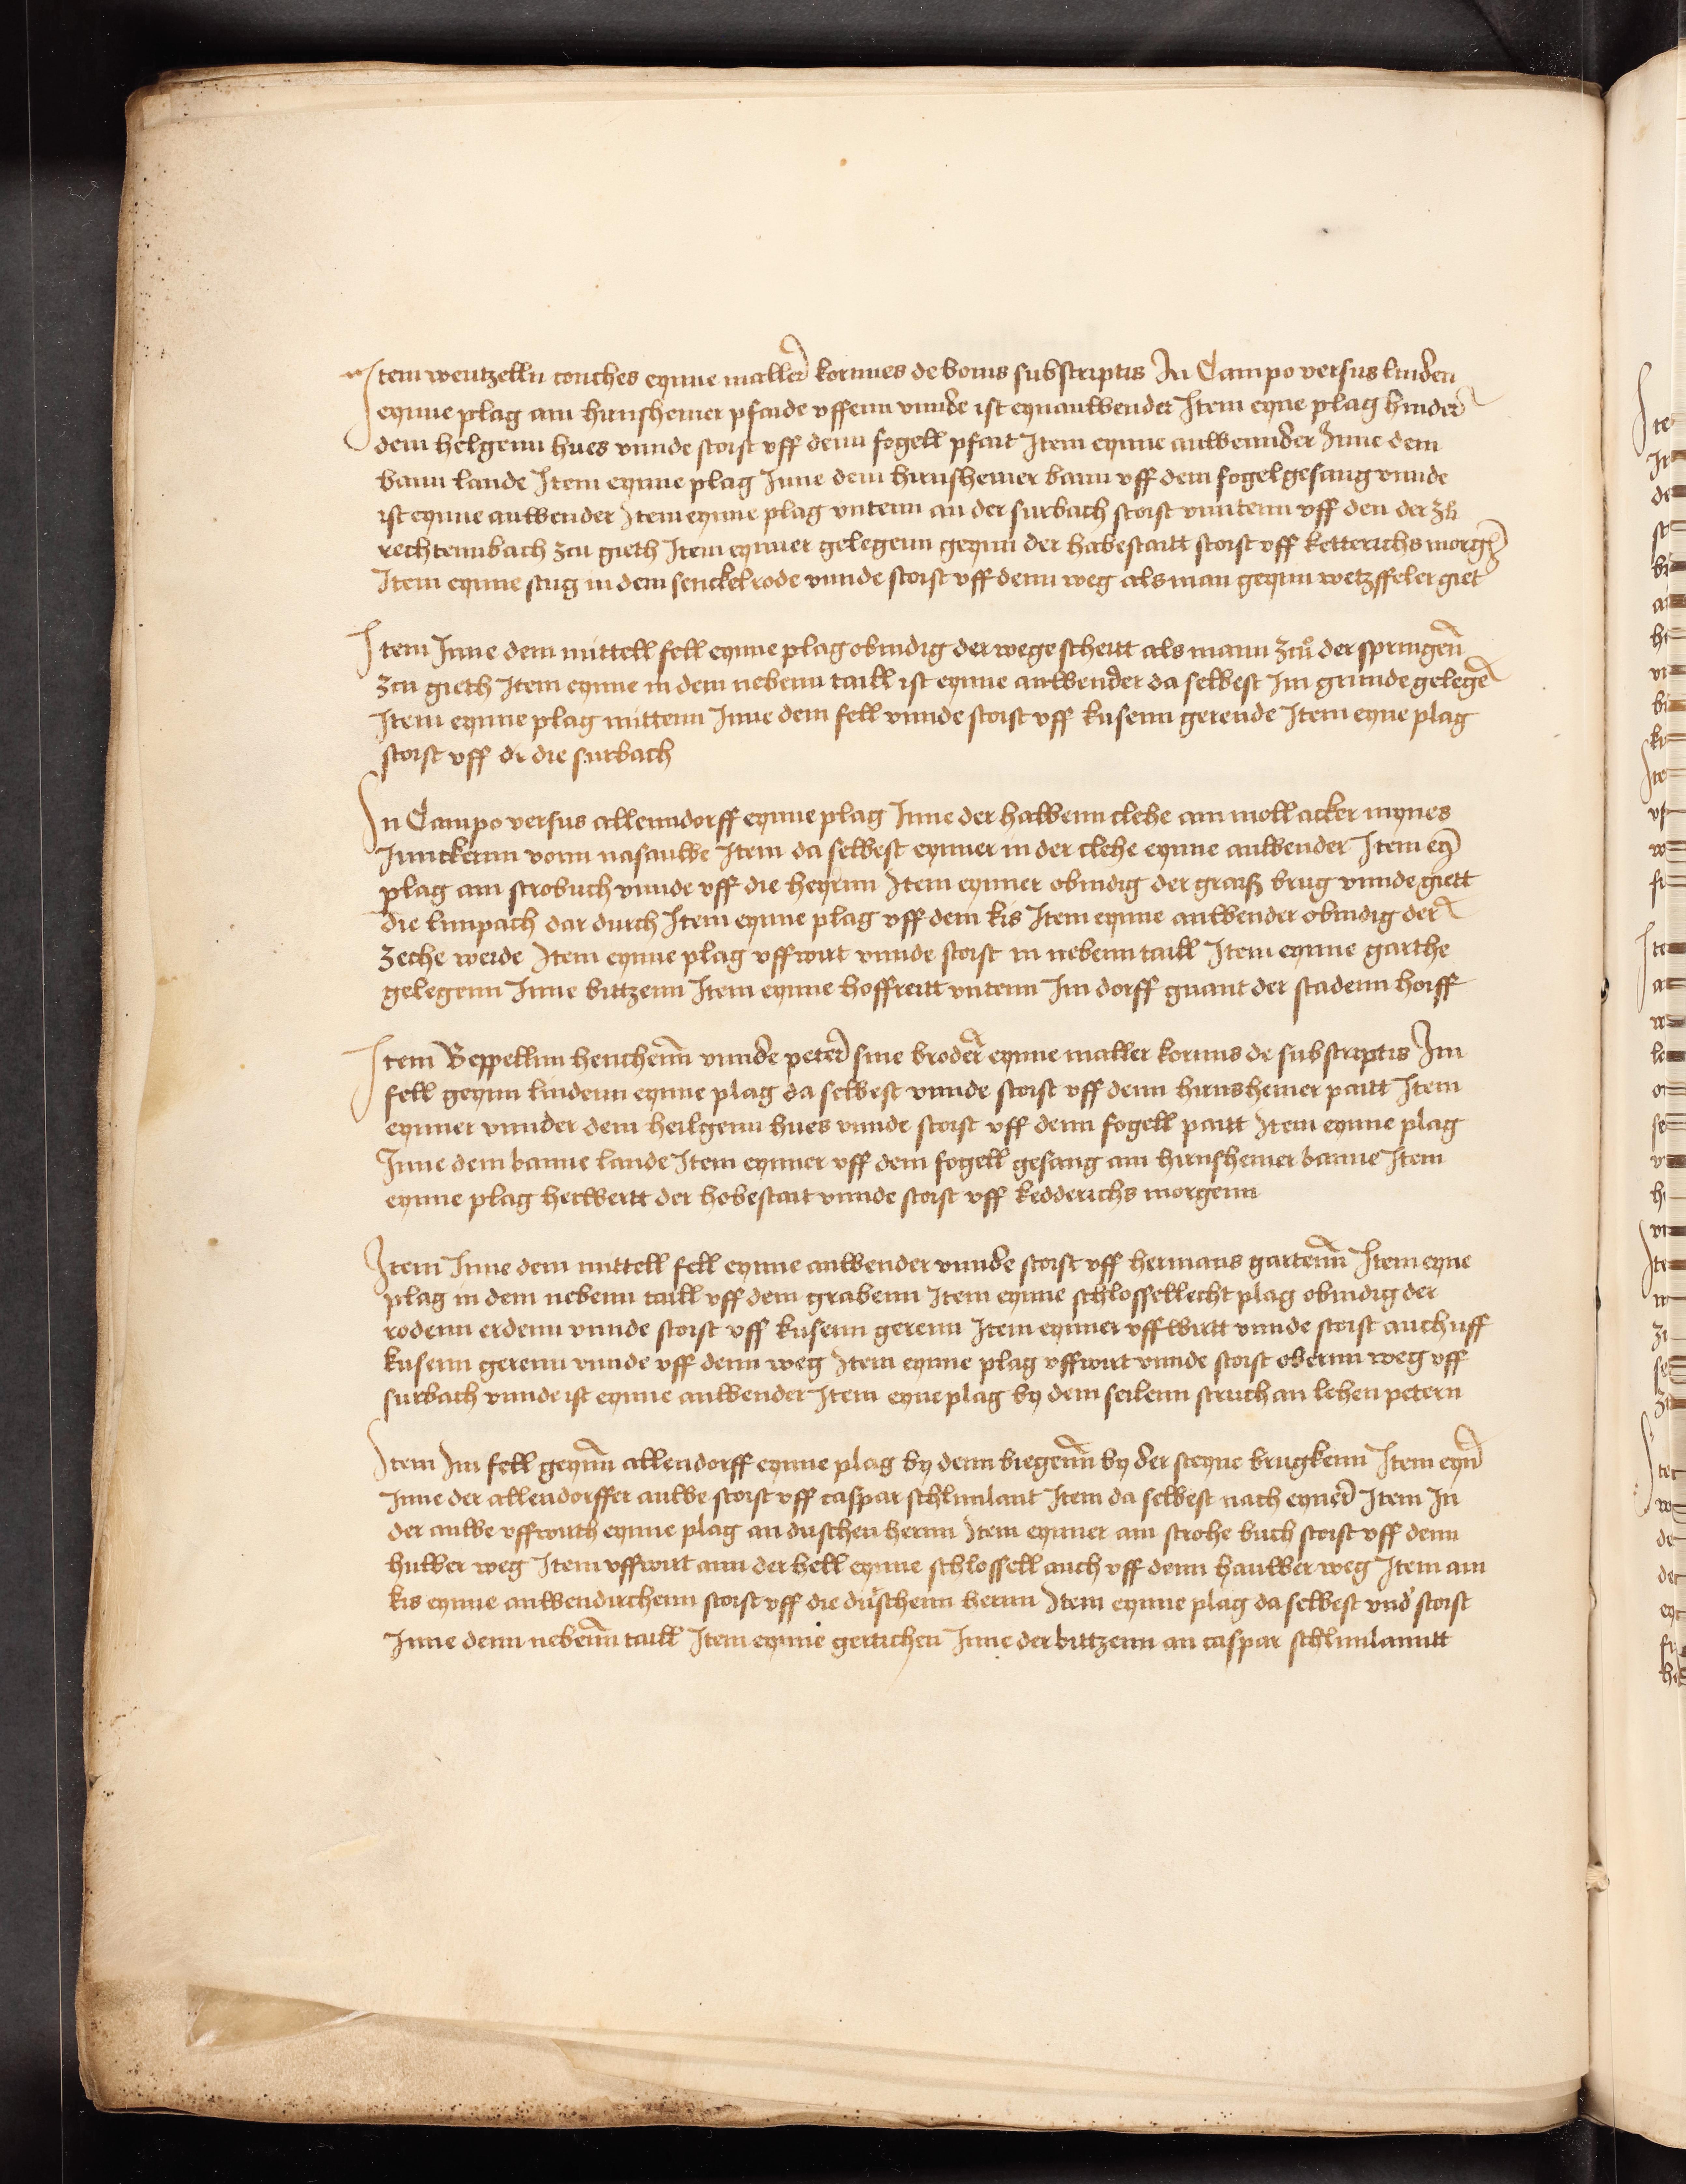 Item wentzelln conches eynne maller kornnes de bonis subscriptis In Campo versus linden
eynne plag am hunshemer pfarde vffenn vnnde ist eynanwender Item eyne plag hinder
dem helgenn hues vnnde stoist vff denn fogell pfart Item eynne anwennder Inne dem
bann lande Item eynne plag Inne dem hunshemer bann vff dem fogelgesang vnnde
ist eynne anwender Item eynne plag vntenn an der surbach stoist vnntenn vff den der zu
rechtennbach zcu gieth Item eynner gelegenn geynn der habestaitt stoist vff ketterichs morgen
Item eynne stug in dem senckelrode vnnde stoist vff denn weg als man geynn wetzffeler giet
Item Inne dem mittell fell eynne plag obindig der wege scheitt als mann zcu der springenn
zcu gieth Item eynne in dem nebenn taill ist eynne anwender da selbest Im grunde gelege
Item eynne plag mittenn Inne dem fell vnnde stoist vff kusenn gerende Item eyne plag
stoist vff di die surbach
In Campo versus allenndorff eynne plag Inne der halbenn clehe am moll acker mynes
Junckernn vonn nasauwe Item da selbest eynner in der clehe eynne anwender Item eyn
plag am strobuch vnnde vff die heyrnn Item eynner obindig der graiß brug vnnde giett
die linpach dar durch Item eynne plag vff dem kis Item eynne anwender obindig der
zeche weide Item eynne plag vffwirt vnnde stoist in nebenn taill Item eynne garthe
gelegenn Inne bittzenn Item eynne hoffreitt vntenn Im dorff gnant der stadenn hoiff
Item Beppellnn henchenn vnnde peter sine broder eynne maller kornns de subscriptis Im
fell geynn lindenn eynne plag da selbest vnnde stoist vff denn hunshemer paitt Item
eynner vnnder dem heilgenn hues vnnde stoist vff denn fogell paitt Item eynne plag
Inne dem banne lande Item eynner vff dem fogell gesang am hunshemer banne Item
eynne plag herwertt der hobestatt vnnde stoist vff kedderichs morgenn
Item Inne dem mittell fell eynne anwender vnnde stoist vff hermans gartenn Item eyne
plag in dem nebenn taill vff dem grabenn Item eynne schlossellecht plag obindig der
rodenn erdenn vnnde stoist vff kusenn gerenn Item eynner vffwirtt vnnde stoist auch uff
kusenn gerenn vnnde vff denn weg Item eynne plag vffwirt vnnde stoist obernn weg vff
surbach vnnde ist eynne anwender Item eyne plag by dem seilenn struch an lehen petern
Item Im fell geynn allendorff eynne plag by denn biegenn by der steyne brugkenn Item eyn
Inne der allendorffer auwe stoist vff caspar schlunlant Item da selbest nach eyner Item In
der auwe vffwirth eynne plag an duschen hernn Item eynner am strohe buch stoist vff denn
hulber weg Item vffwirt ann der hell eynne schlossell auch vff denn haulber weg Item am
kis eynne anwendirchenn stoist vff die duschenn hernn Item eynne plag da selbest vnd stoist
Inne denn nebenn taill Item eynne gertichen Inne der bittzenn an caspar schlunlanntt